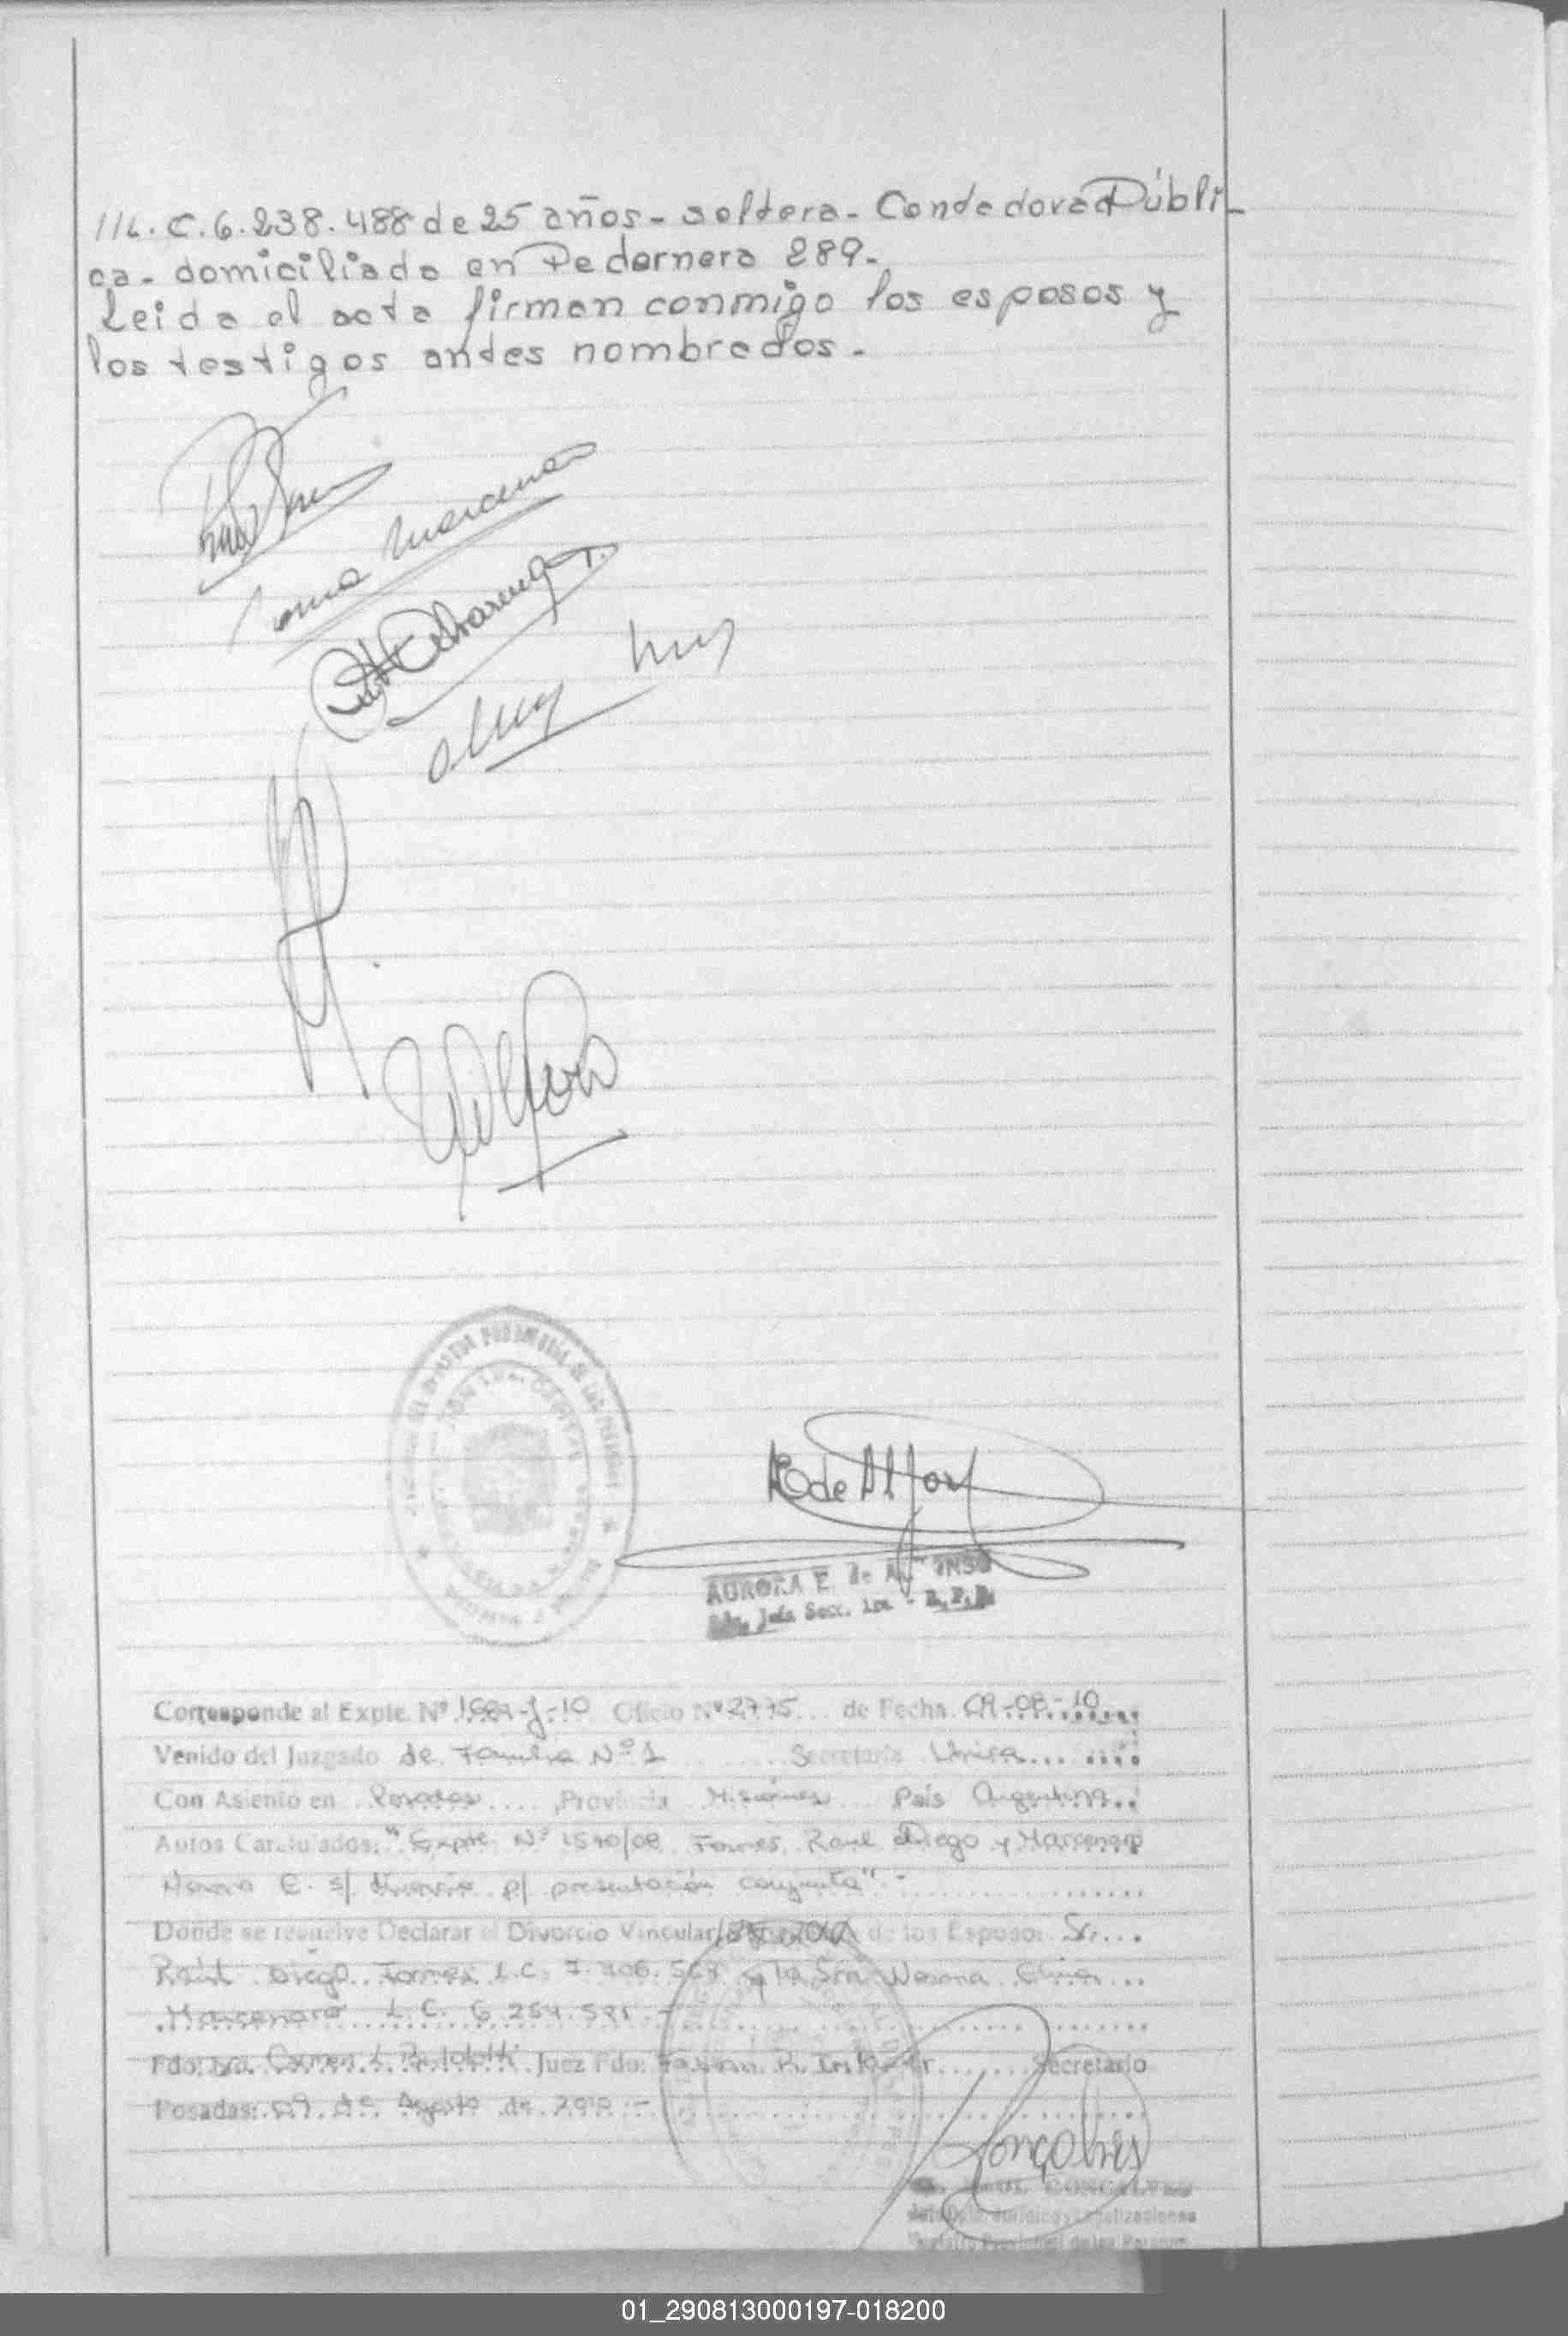 ///L.C.6.238.488 de 25 años - soltera - Contadora Públi-
ca - domiciliada en Pedernera 289.-
Leida el acta firman conmigo los esposos y
los testigos antes nombrados.-
AURORA E. de
Jefa Secc. 1ra - R.P.P.
Corresponde al Expte. Nº Oficio Nº 2775 de Fecha 09-08-10
Venido del Juzgado de Familia Nº 1 Secretaría Unica
Con Asiento en Posadas Provincia Misiones País Argentina
Autos Caratulados: "Expte. Nº 1540/08 Torres Raul Diego y Marcenaro
Norma E. s/ divorcio p/ presentación conjunta".-
Donde se resuelve Declarar el Divorcio Vincular de los Esposos Sr.
Raúl Diego Torres L.C. 7.806. y la Sra Norma
Marcenaro L.C. 6.254.591.-
Fdo: Dra. Carmen Juez Fdo: Secretario
Posadas: 09 de Agosto de 2010.-
Gonçalves
GONCALVES
01_290813000197-018200